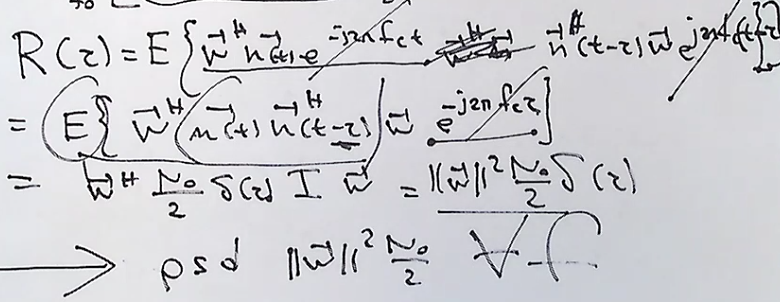 R(τ) = E{ w⃗ᴴ n⃗(t) e^{-j2πf_c t} n⃗ᴴ(t-τ) w⃗ e^{j2πf_c(t-τ)} }
= E{ w⃗ᴴ n⃗(t) n⃗ᴴ(t-τ) w⃗ e^{-j2πf_c τ} }
= w⃗ᴴ N₀/2 δ(τ) I w⃗ = ||w⃗||² N₀/2 δ(τ)
→ psd ||w⃗||² N₀/2 ∀ f